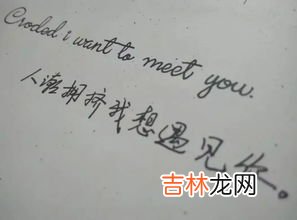 Croded i want to meet you.
人潮拥挤我想遇见你。
吉林龙网